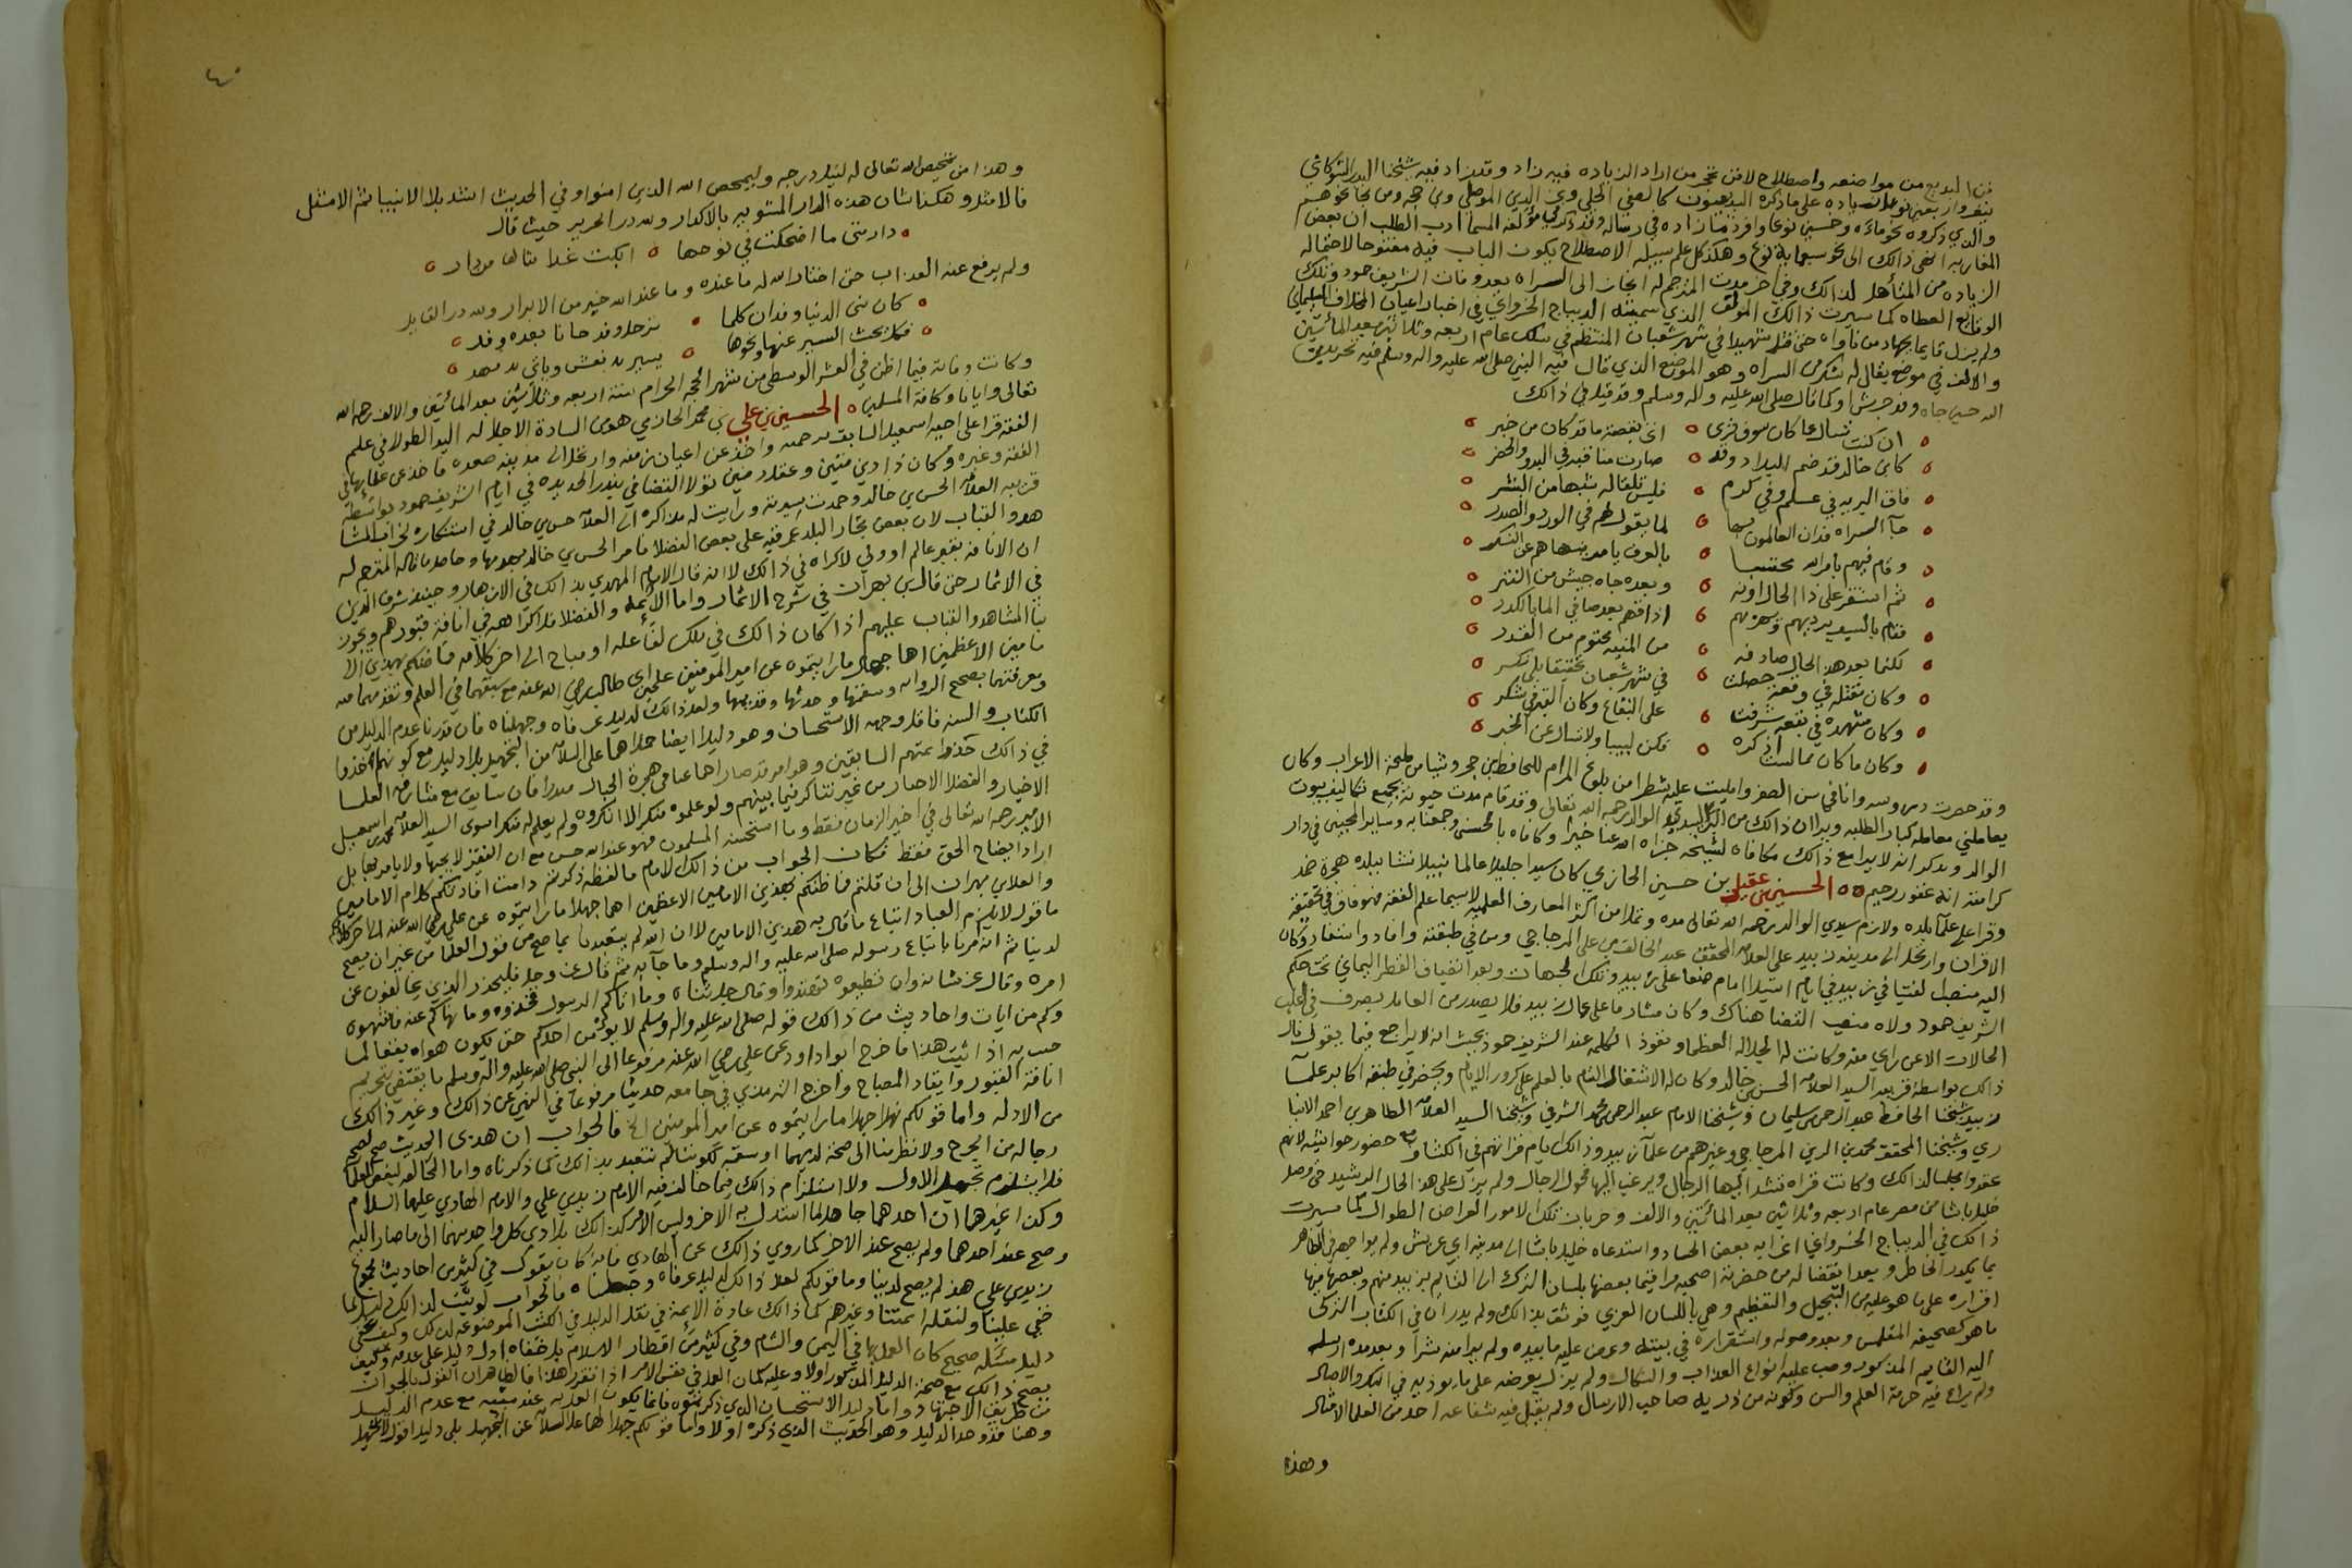 فن البديع من مواضعه واصطلاح لافن نحو من اراد الزياده فيه زاد وقد زاد فيه شيخنا البدر الشوكاني
على ماذكره البديعيون كالصفي الحلي وعز الدين الموصلي وبن حجه ومن نحا نحوهم
والذي ذكروه نحو مائه وخمسين نوعا وافرد مازاده في رساله وقد ذكر في مؤلفه المسما ادب الطلب ان بعض
المغاربه انهى ذالك الى نحو سبعمايه نوع وهكذا كل علم سبيله الاصطلاح يكون الباب فيه مفتوحا لاحتماله
الزياده من المتأهل لذالك وفي اخر مدت المترجم له انحاز الى السراه بعد وفات الشريف حمود وتلك
الوقائع العظاه كما سيرت ذالك المؤلف الذي سميته الديباج الخسرواني في اخبار اعيان المخلاف السليماني
ولم يزل قايما بجهاد من ناواه حتى قتل شهيدا في شهر شعبان المنتظم في سلك عام اربعه وثلاثين بعد المائتين
والالف في موضع يقال له شكر من السراه وهو الموضع الذي قال فيه النبي صلى الله عليه واله وسلم فيه نحر بدن
الله حين جاه وفد جرش او كما قال صلى الله عليه واله وسلم وقد قيل في ذالك
ان كنت تسأل عما كان سوف ترى ه اني بقصة ما قد كان من خبر
كابن خالد قد ضم البلاد وقد ه صارت مناقبه في البدو والحضر
فاق البريه في علم وفي كرم ه فليس تلقا له شبها من البشر
جآ السراه فدان العالمون بها ه لما يقول لهم في الورد والصدر
وقام فيهم بامر الله محتسبا ه بالعرف يامر ينهاهم عن النكر
ثم استقر على ذا الحال اونه ه وبعده جاه جيش من التتر
فقام بالسيد يرديهم ويهزمهم ه اذاقهم بعد صافي الما بالكدر
لكنما بعد هذا الحال صادفه ه من المنيه محتوم من القدر
وكان مقتله في وقعة حصلت ه في شهر شعبان تحقيقا بلى نكر
وكان مشهده في بقعه شرفت ه على البقاع وكان القبر في شكر
وكان ما كان مما لست اذكره ه فكن لبيبا ولا تسال عن الخبر
وقد حضرت دروسه وانا في سن الصغر وامليت عليه شطرا من بلوغ المرام للحافظ بن حجر وشيا من ملحة الاعراب وكان
يعاملني معامله كبار الطلبه ويرا ان ذالك من البر لسيدي الوالد رحمه الله تعالى وقد قام مدت حيوته بجميع تكاليف بيوت
الوالد ويذكر انه لا يرا مع ذالك مكافاه لشيخه جزاه الله عنا خيرا وكافاه بالحسنى وجمعنا به وساير المحبين في دار
كرامته انه غفور رحيم ه ه الحسين بن عقيل بن حسين الحازمي كان سيدا جليلا عالما نبيلا نشا ببلده هجرة ضمد
وقرا على علمآ بلده ولازم سيدي الوالد رحمه الله تعالى مده وتملا من اكثر المعارف العلميه لاسيما علم الفقه فهو فاق في تحقيقه
الاقران وارتحل الى مدينة زبيد على العلامه المحقق عبد الخالق بن علي المزجاجي ومن في طبقته وافاد واستفاد وكان
اليه منصب الفتيا في زبيد في ايام استيلا امام صنعا على زبيد وتلك الجهات وبعد انضياف القطر اليماني تحت حكم
الشريف حمود ولاه منصب القضا هناك وكان مشاد ما على عمال زبيد فلا يصدر من العامل تصرف في اغلب
الحالات الا عن راي منه وكانت له الجلاله العظما ونفوذ الكلمه عند الشريف حمود بحيث انه لا يراجع فيما يقول نال
ذالك بواسطة قريبه السيد العلامه الحسن بن خالد وكان له الاشتغال التام بالعلم على كرور الايام وبحضر في طبقه اكابر علمآ
زبيد شيخنا الحافظ عبد الرحمن بن سليمان وشيخنا الامام عبد الرحمن بن محمد الشرفي وشيخنا السيد العلامه الطاهر بن احمد الانبا
ري وشيخنا المحقق محمد بن الزين المزجاجي وغيرهم من علمآ زبيد وذالك ايام قراتهم في الكشاف مع حضور حواشيه لانهم
عقدوا مجلسا لذالك وكانت قراه تشد اليها الرحال ويرغب اليها فحول الرجال ولم يزل على هذ الحال الرشيد حتى وصل
خليل باشا من مصر عام اربعه وثلاثين بعد المائتين والالف وجريان تلك الامور العراض الطوال كما سيرت
ذالك في الديباج الخسرواني اغرا به بعض الحساد واستدعاه خليل باشا الى مدينة ابي عريش ولم يواجهه في الظاهر
بما يكدر الخاطر وبعد انقضا له من حضرته اصحبه مراقيما بعضها بلسان الترك الى القايم بزبيد منهم وبعضها فيها
اقراره على ما هو عليه من التبجيل والتعظيم وهي باللسان العربي فوثق بذالك ولم يدر ان في الكتاب التركي
ما هو كصحيفة المتلمس وبعد وصوله واستقراره في بيته وعرض عليه ما بيده ولم ير امنه شرا وبعد مده ارسل
اليه القايم المذكور وصب عليه انواع العذاب والنكال ولم يزل يعرضه على ما يوذيه في البكر والاصال
ولم يراع فيه حرمة العلم والسن وكونه من ذريه صاحب الارسال ولم يقبل فيه شفاعه احد من العلما الامثال
وهذا
٤٠
وهذا من تمحيص الله تعالى له لنيل درجه وليمحص الله الذين امنوا وفي الحديث اشد بلا الانبيا ثم الامثل
فالامثل وهكذا شان هذه الدار المشوبه بالاكدار ولله در الحريري حيث قال
دار متى ما اضحكت في يومها ه ابكت غدا بها من دار ه
ولم يرفع عنه العذاب حتى اختار الله له ما عنده وما عند الله خير من الابرار ولله در القايل
كان بنى الدنيا وفدان كلما ه ترحل وفد حانا بعده وفد ه
فكل بحث السير عنها ونحوها ه يسير به نعش وياتي به مهد ه
وكانت وفاته فيما اظن في العشر الوسطى من شهر الحجه الحرام سنة اربعه وثلاثين بعد المائتين والالف رحمه الله
تعالى وايانا وكافة المسلمين ه الحسين بن علي بن محمد الحازمي هو من السادة الاجلا له اليد الطولا في علم
الفقه قرا على اخيه اسمعيل السابق ترجمته واخذ عن اعيان زمنه وارتحل الى مدينه صعده فاخذ عن علمايها في
الفقه وغيره وكان ذا دين متين وعقل رصين تولا القضا في بندر الحديده في ايام الشريف حمود بواسطة
قريبه العلامه الحسن بن خالد وحمدت سيرته ورايت له مذاكره الى العلامه حسن بن خالد في استنكاره لخراب المشا
هد والقباب لان بعض تجار البلد عمر قبه على بعض الفضلا فامر الحسن بن خالد بهدمها وحاصل ما قاله المترجم له
ان الانافه بقبر عالم او ولي لا كراه في ذالك لا انه قال الامام المهدي بذالك في الازهار وحفيده شرف الدين
في الاثمار حتى قال بن بهران في شرح الاثمار واما الائمه والفضلا فلا كراهه في انافة قبورهم ويجوز
بنا المشاهد والقباب عليهم اذا كان ذالك في ملك لفاعله او مباح الى اخر كلامه فما ظنكم بهذين الا
مامين الاعظمين اهما جهلا ما رايتموه عن امير المومنين علي بن ابي طالب رضي الله عنه مع سبقهما في العلم وتقدمهما منه
ومعرفتهما بصحيح الروايه وسقمها وحدثها وقديمها ولعل ذالك لدليل عرفاه وجهلناه فان قدرنا عدم الدليل من
الكتاب والسنه فاقل وجه الاستحسان وهو دليل ايضا حملا هما على السلامه من التجهيل بلا دليل مع كونهما اخذوا
في ذالك حذو ائمتهم السابقين وهو امر قد صار اهما عنا في هجرة الجبال مدرا فان سابق مع مشارفه العلما
الاخيار والفضلا الاحبار من غير تناكر فيما بينهم ولو علموه منكرا لا انكروه ولم يعلم له منكر اسوى السيد العلامه محمد بن اسمعيل
الامير رحمه الله تعالى في اخير الزمان فقط وما استحسنه المسلمون فهو عند الله حسن مع ان الفقير لا يحبها ولا يامر بها بل
اراد ايضاح الحق فقط فكان الجواب من ذالك الامام ما لفظه ذكرتم دامت افادتكم كلام الامامين
والعلا بن بهران الى ان قلتم فما ظنكم بهذين الامامين الاعظمين اهما جهلا ما رايتموه عن علي رضي الله عنه الى اخر كلامكم
ما قول لا يلزم العباد اتباع ما قال به هذين الامامين لا ان الله لم يتعبدنا بما صح من قول العلما من غير ان يصح
لدينا ثم انه امرنا باتباع رسوله صلى الله عليه واله وسلم وما جآ به ثم قال عز وجل فليحذر الذين يخالفون عن
امره وقال عز شانه وان تطيعوه تهتدوا وقال جل ثناه وما اتاكم الرسول فخذوه وما نهاكم عنه فانتهوه
وكم من ايات واحاديث من ذالك قوله صلى الله عليه واله وسلم لا يومن احدكم حتى يكون هواه تبعا لما
جيت به اذا ثبت هذا فاخرج ابو اداود عن علي رضي الله عنه مرفوعا الى النبي صلى الله عليه واله وسلم ما يقتضي تحريم
انافة القبور وايقاد المصباح واخرج الترمذي في جامعه حديثا مرفوعا في النهي عن ذالك وغير ذالك
من الادله واما قولكم فهلا جهلا ما رايتموه عن امير المومنين الخ فالجواب ان هذين الحديث صح لصحه
رجاله من الجرح ولا نظر منا الى صحته لديهما او سقمه لكوننا لم نتعبد بذالك كما ذكرناه واما الخالفه لبعض العلما
فلا يستلزم تجهيل الاول ولا استلزام ذالك فيما خالف فيه الامام زيد بن علي والامام الهادي عليهما السلام
وكذا غيرهما ان احدهما جاهل لما استدل به الاخر وليس الامر كذالك بل ادى كل واحد منهما الى ما صار اليه
وصح عند احدهما ولم يصح عند الاخر كما روي ذالك عن الهادي فانه كان يقول في كثير من احاديث مجموع
زيد بن علي هذ لم يصح لدينا وما قولكم لعلا ذالك لدليل عرفاه وجهلناه فالجواب لو ثبت لذالك دليل لما
خفي علينا ولنقله ائمتنا وغيرهم كما ذالك عادة الايمه في نقل الدليل في الكتب الموضوعه لذالك وكيف يخفى
دليل مسئله صحيح كان العمل بها في اليمن والشام وفي كثير من اقطار الاسلام بل خفاه ادل دليل على عدمه وكيف
يصح ذالك مع صحة الدليل المذكور اولا وعليه كان العمل في نفس الامر اذا تقرر هذا فالظاهران القول بالجواز
من طريق الاجتهاد واما دليل الاستحسان الذي ذكرتموه فانما يكون العمل به عند مثبته مع عدم الدليل
وهنا قد وجد الدليل وهو الحديث الذي ذكره اولا واما قولكم جهلا لهما على السلامه عن التجهيل بلى دليل اقول لا تجهيل